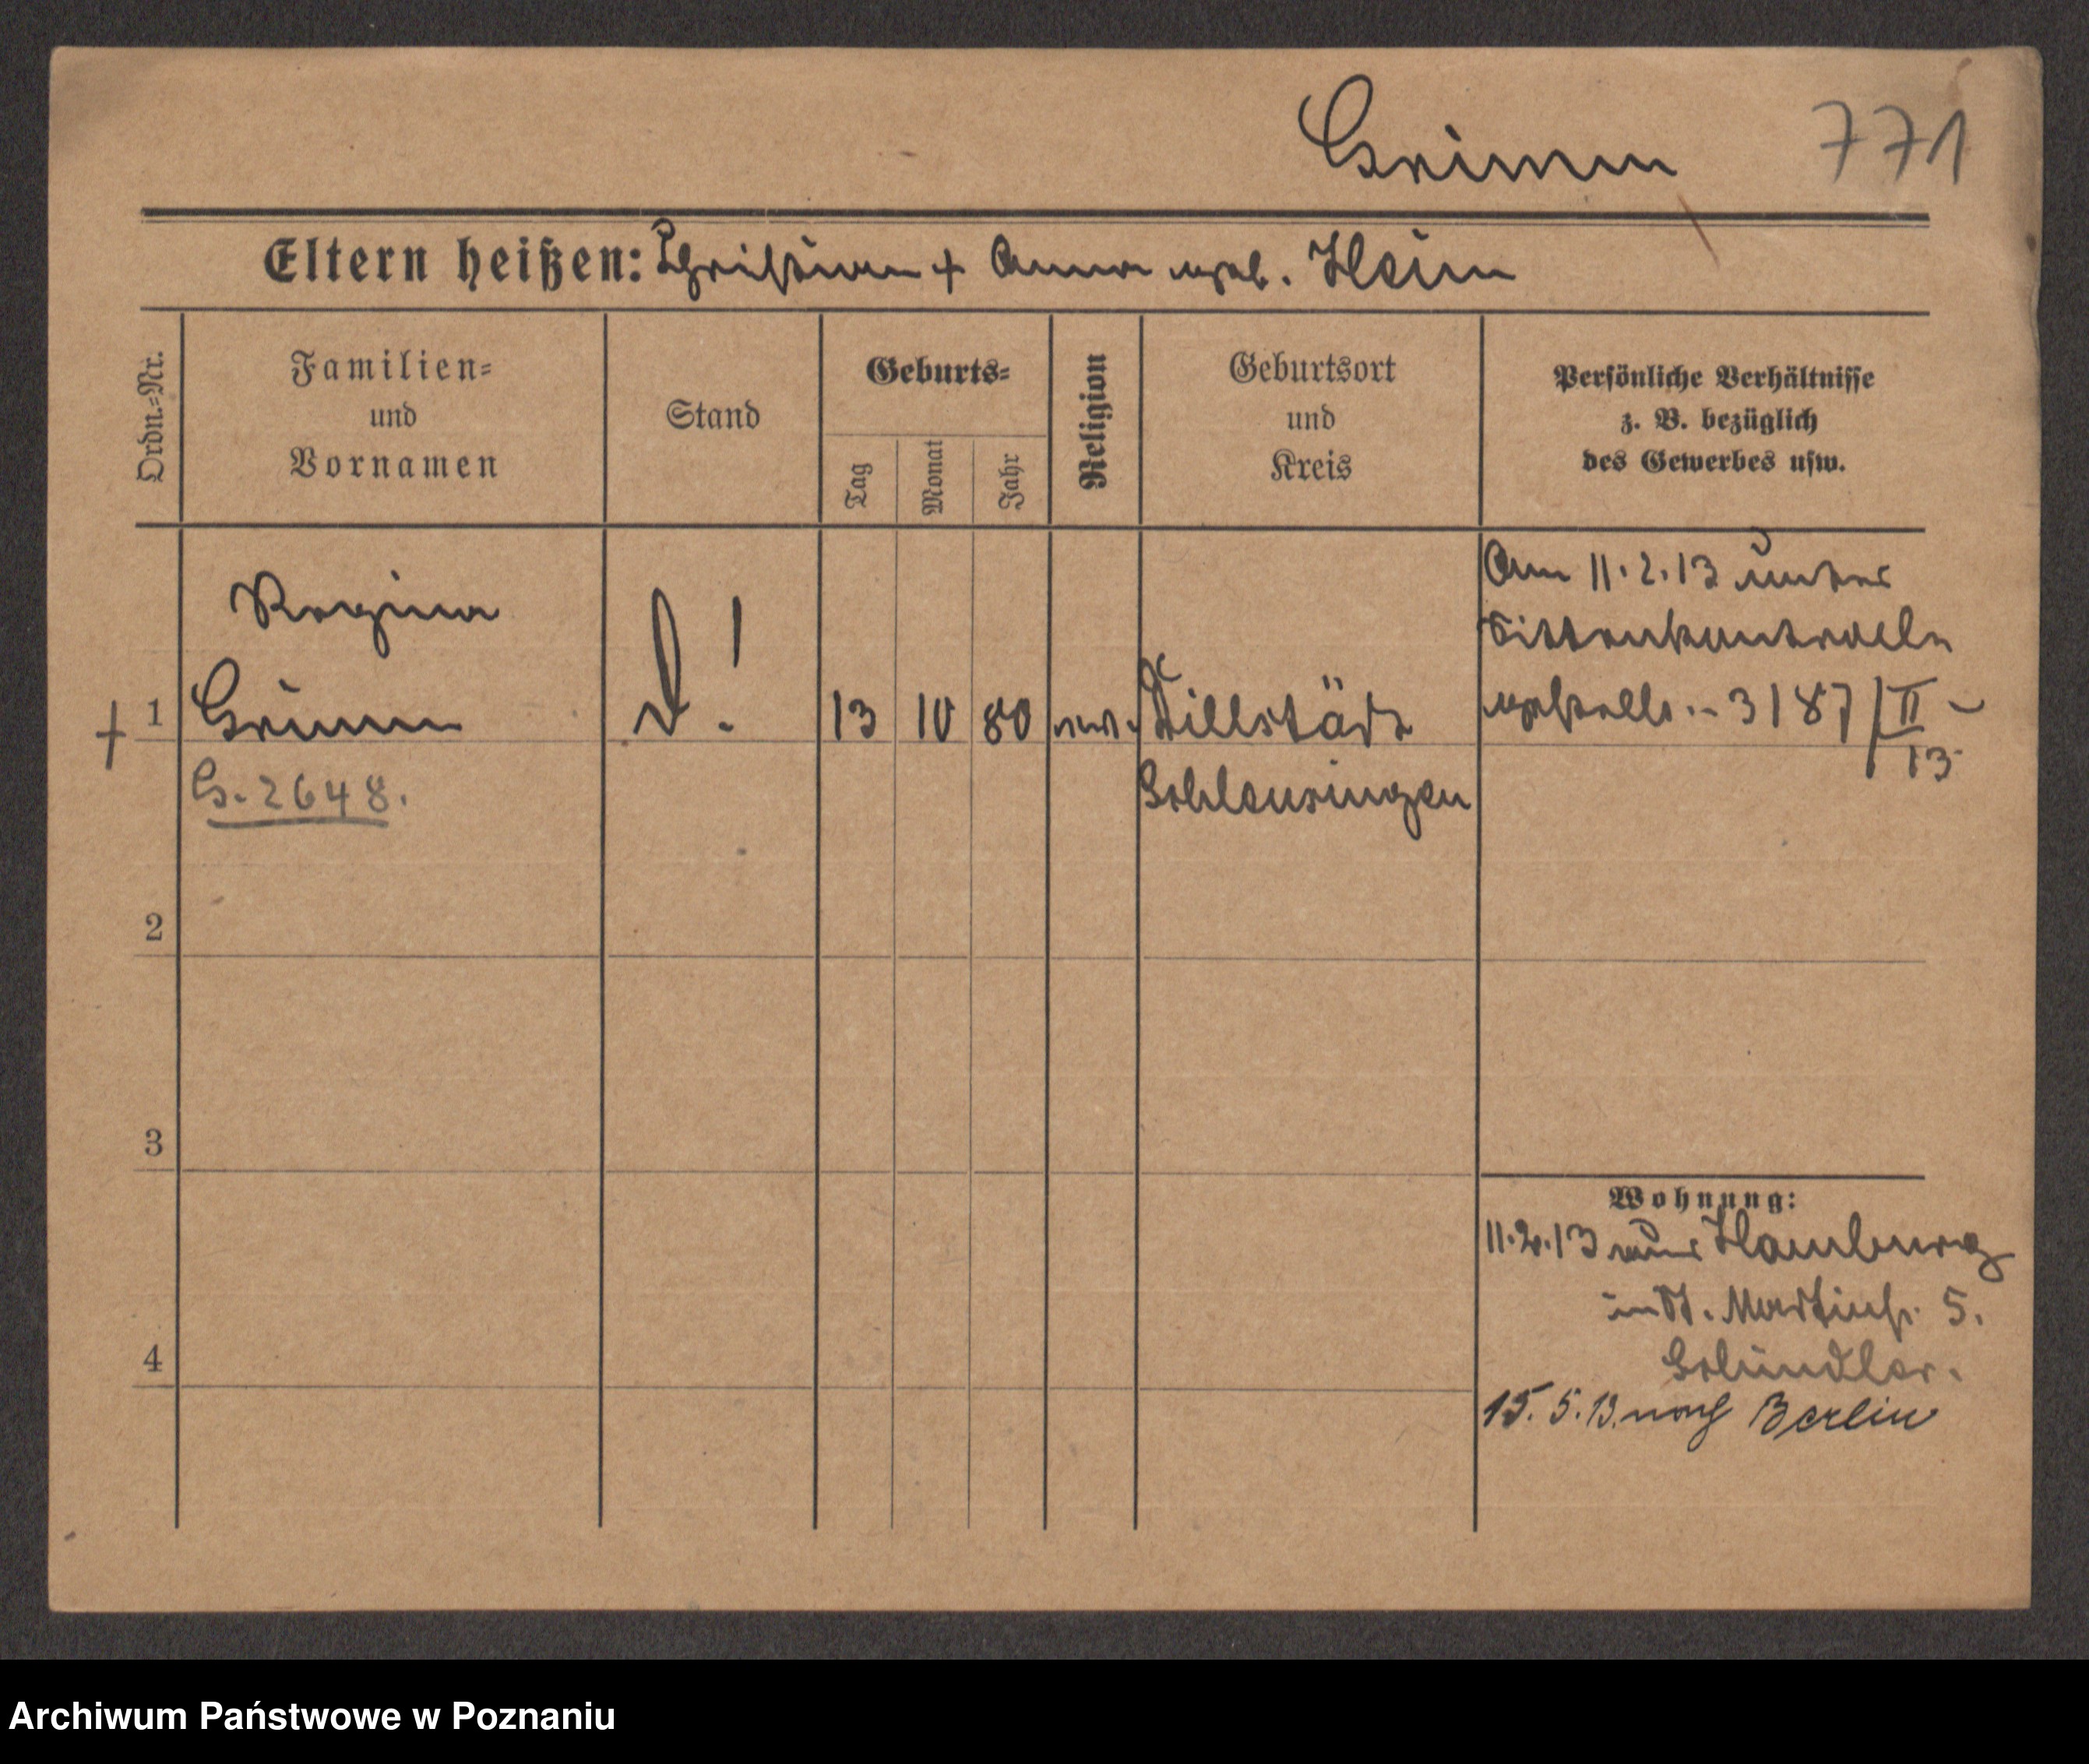 Grimm 771
Eltern heißen: Christian + Anna geb. Heim
Ordn.-Nr.
Familien-
und
Vornamen
Stand
Geburts-
Tag
Monat
Jahr
Religion
Geburtsort
und
Kreis
Persönliche Verhältnisse
z. B. bezüglich
des Gewerbes usw.
Regina
+ 1 Grimm D! 13 10 80 Dillstädt
G. 2648.
Schleusingen
Am 11.2.13 unter
Sittenkontrolle
gestellt. - 3187/II
13
2
3
4
Wohnung:
11.2.13 aus Hamburg
in St. Martinstr. 5.
Schindler.
15.5.13. nach Berlin
Archiwum Państwowe w Poznaniu